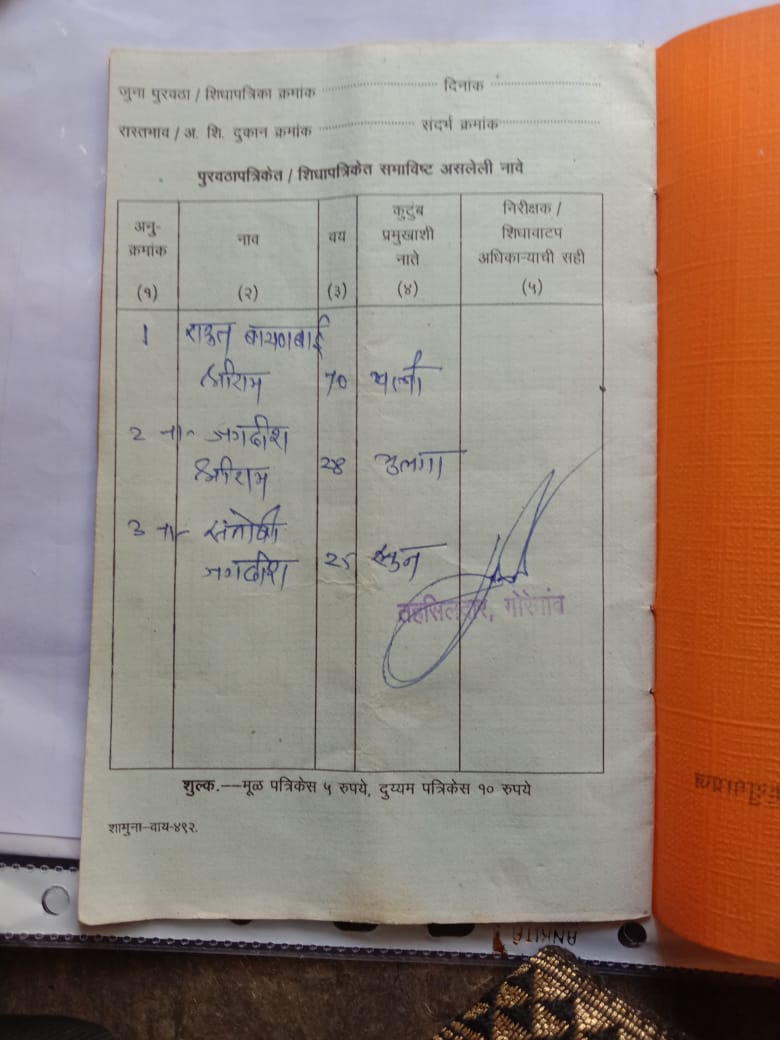 जुना पुरवठा / शिधापत्रिका क्रमांक .................... दिनांक ....................
रास्तभाव / अ. शि. दुकान क्रमांक .................... संदर्भ क्रमांक....................
पुरवठापत्रिकेत / शिधापत्रिकेत समाविष्ट असलेली नावे
अनु-
क्रमांक
(१)
नाव
(२)
वय
(३)
कुटुंब
प्रमुखाशी
नाते
(४)
निरीक्षक /
शिधावाटप
अधिकाऱ्याची सही
(५)
1 राऊत
श्रीराम 70 पत्नी
2 -॥- जगदीश
श्रीराम 28 मुलगा
3 -॥- संतोषी
जगदीश 25 सुन
तहसिलदार, गोरेगांव
शुल्क.—मूळ पत्रिकेस ५ रुपये, दुय्यम पत्रिकेस १० रुपये
शामुना-वाय-४९२.
ANKITA